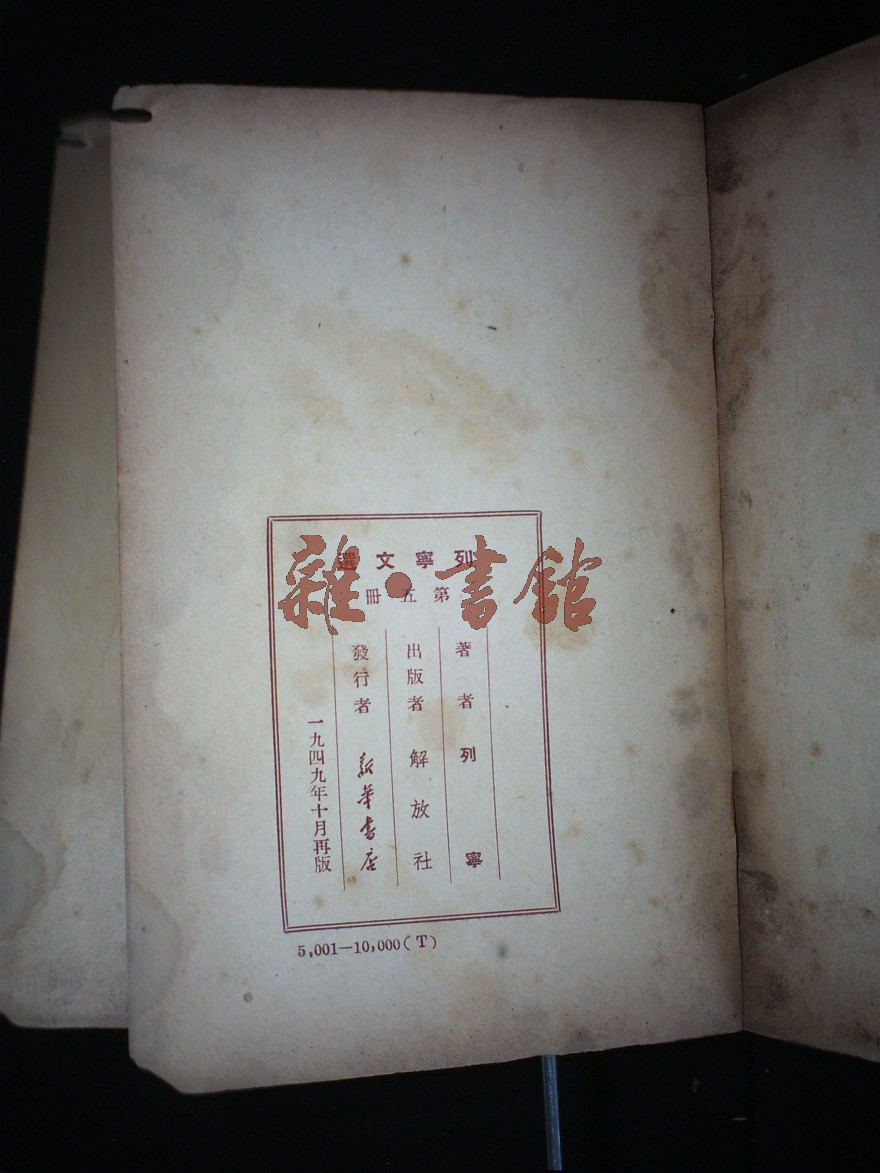 列寧文選
第五冊
著者 列寧
出版者 解放社
發行者 新華書店
一九四九年十月再版
5,001—10,000(T)
雜·書館